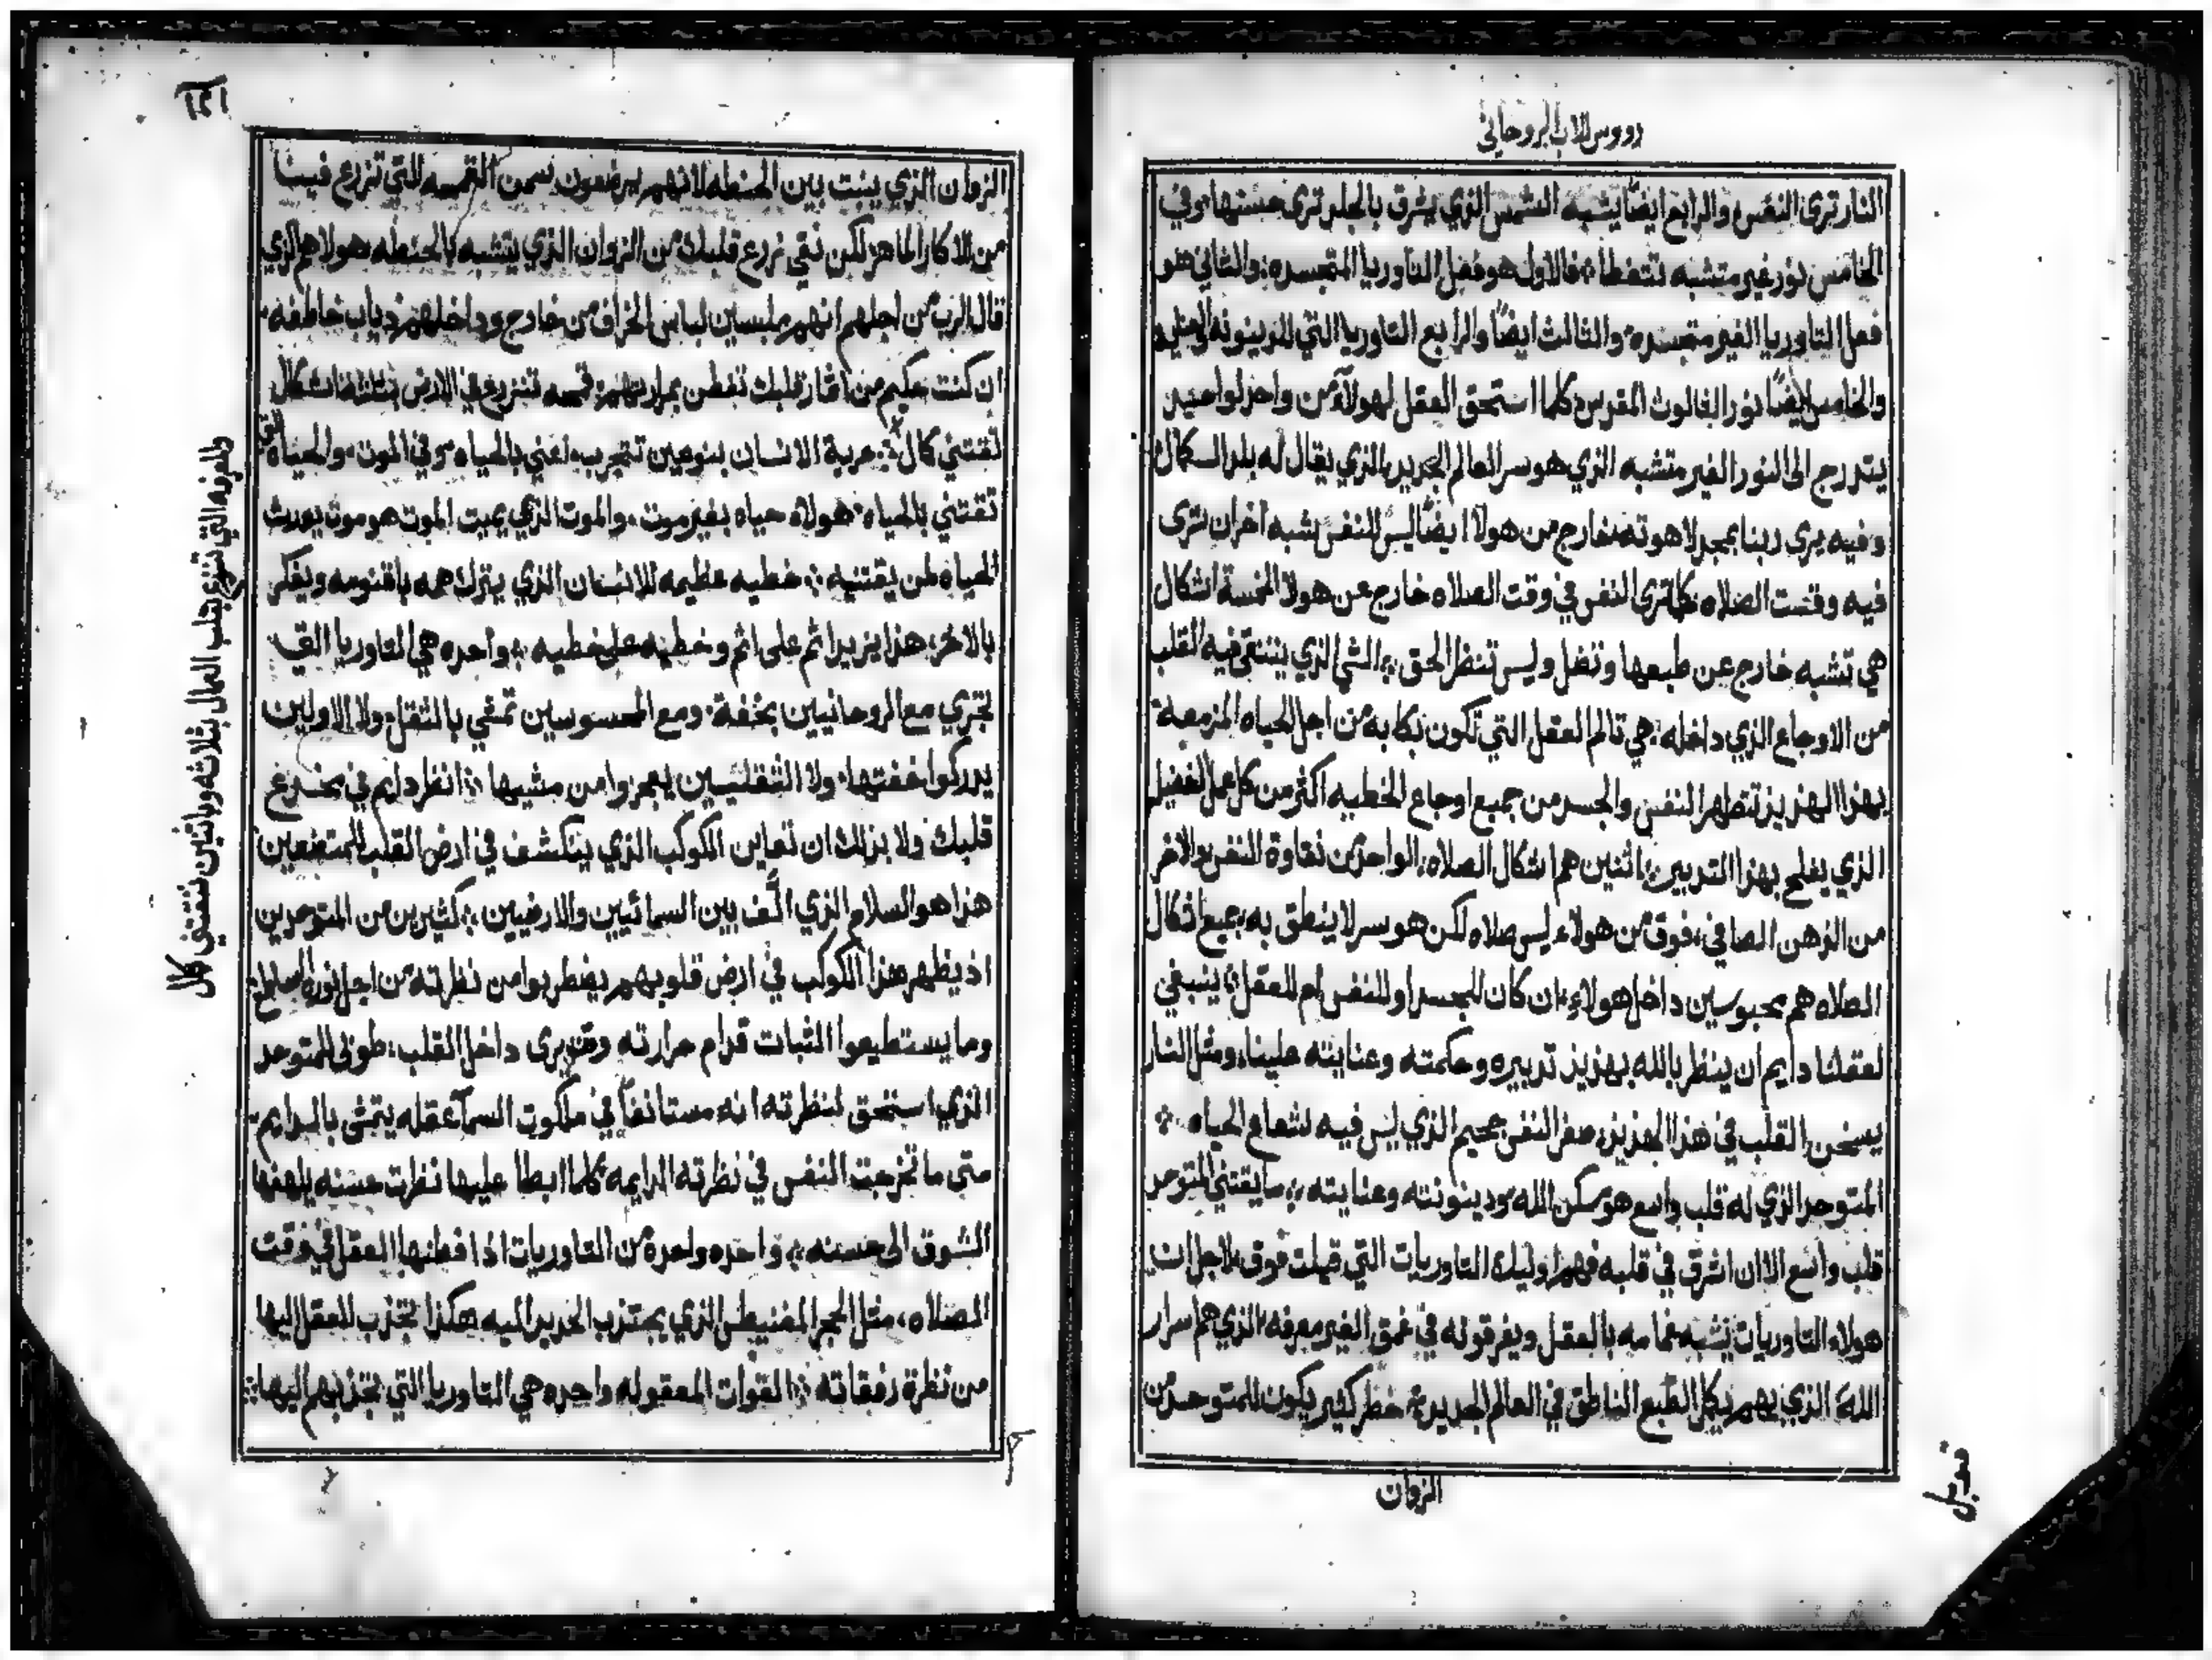 رووس الاب الروحاني
النار ترى النفس والرابع ايضا يشبه الشمس الذي يشرق بالجلد ترى حسنها وفي
الخامس نور غير متشبه تتغطا فالاول هو فعل التاوريا المتجسده والثاني هو
فعل التاوريا الغير متجسده والثالث ايضا والرابع التاوريا التي للدينونه
والخامس ايضا نور الثالوث المقدس كلما استحق العقل لهولاء من واحد لواحد
يتدرج الى النور الغير متشبه الذي هو سر العالم الجديد الذي يقال له بلد الكمال
وفيه يرى ربنا بمجد لاهوته خارج من هولا ايضا ليس للنفس شبه اخر ان ترى
فيه وقت الصلاه كلما ترى النفس في وقت الصلاه خارج عن هولا الخمسة اشكال
هي تشبه خارج عن طبعها وتضل وليس تنظر الحق الشي الذي يتنقى فيه القلب
من الاوجاع الذي داخله هي تالم العقل التي تكون بكابه من اجل الحياه المزمعة
بهذا الهذيذ تتطهر النفس والجسد من جميع اوجاع الخطيه اكثر من كل عمل الفضيله
الذي يفلح بهذا التدبير اثنين هم اشكال الصلاه الواحد من نقاوة النفس والاخر
من الذهن الصافي فوق من هولاء ليس صلاه لكن هو سر لا ينطق به جميع اشكال
الصلاه هم محبوسين داخل هولاء ان كان للجسد او للنفس ام للعقل ينبغي
لعقلنا دايم ان ينظر بالله بهذيذ تدبيره وحكمته وعنايته علينا ومثل النار
يسخن القلب في هذا الهذيذ صغر النفس جحيم الذي ليس فيه شعاع الحياه
المتوحد الذي له قلب واسع هو مسكن الله ودينونته وعنايته ما يقتني المتوحد
قلب واسع الا ان اشرق في قلبه فهم اوليك التاوريات التي قيلت فوق لاجل ان
هولاء التاوريات يشبه غمامه بالعقل ويغرقونه في عمق الغير معرفه الذي هم اسرار
الله الذي بهم يكمل الطبع الناطق في العالم الجديد خطر كثير يكون للمتوحد من
الزوان
قوبل
١٢١
الزوان الذي ينبت بين الحنطه لانهم يرضعون سمن القمحه التي تزرع فينا
من الاكار الماهر لكن نقي زرع قلبك من الزوان الذي يتشبه بالحنطه هولا هم الذي
قال الرب من اجلهم انهم ملبسين لباس الخراف من خارج وداخلهم دياب خاطفه
ان كنت حكيم من اثمار قلبك تفطن بمرارتهم قمحه تنزرع في الارض بثلاثة اشكال
تقتني كمال حرية الانسان بنوعين تتجرب اعني بالحياه وفي الموت والحياه التي
تقتني بالحياه هولاء حياه بغير موت والموت الذي يميت الموت هو موت يورث
الحياه لمن يقتنيه خطيه عظيمه للانسان الذي يترك همه باقنومه ويفكر
بالاخر هذا يزيد اثم على اثم وخطيه على خطيه واحده هي التاوريا التي
تجري مع الروحانيين بخفة ومع المحسوسين تمشي بالثقل ولا الاولين
يدركوا خفتها ولا الثقليين يعجزوا من مشيها انظر دايم في مخدع
قلبك ولا بد لك ان تعاين الكوكب الذي ينكشف في ارض القلب للمتضعين
هذا هو السلام الذي الف بين السمائيين والارضيين كثيرين من المتوحدين
اذ يظهر هذا الكوكب في ارض قلوبهم يضطربوا من نظرته من اجل نوره الساطع
وما يستطيعوا الثبات قدام حرارته وهو يرى داخل القلب طوبى للمتوحد
الذي استحق لنظرته انه مستانفا في ملكوت السما عقله يتمشى بالدايم
متى ما تخرجت النفس في نظرته الدايمه كلما ابطا عليها نظرت حسنه يلهفها
الشوق الى حسنه واحده واحده من التاوريات اذا فعلنها العقل في وقت
الصلاه مثل الحجر المغنيطس الذي يجتذب الحديد اليه هكذا تجذب للعقل اليها
من نظرة رفقاته القوات المعقوله واحده هي التاوريا التي تجذبهم اليها
والمعرفه التي تنزرع بقلب العمال بثلاثه وباثنين تقتني كمال